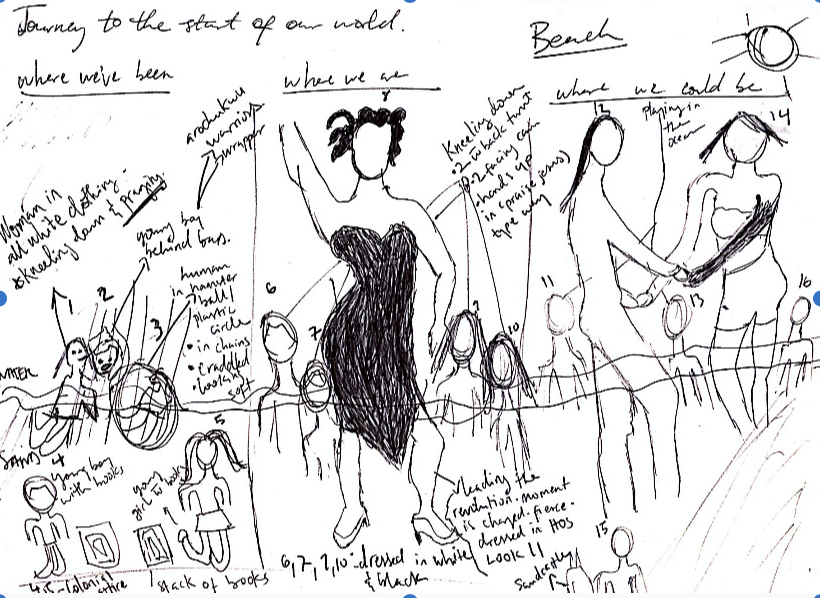 Journey to the start of our world.
Beach
where we've been
where we are
where we could be
arochukwu
warrior
wrapper
Woman in
all white clothing.
kneeling down & Praying.
young boy
behind bars.
human
in hamster
ball/
plastic
circle
• in chains
• craddled
• looking
soft
1
2
3
WATER
SAND
4
young boy
with books
young
girl w books
5
stack of books
6
7
8
9
10
Kneeling down
•2 w back turnt
•2 facing cam
•hands up
in (praise jesus)
type way
leading the
revolution. moment
is charged. fierce.
dressed in HOS
LOOK 11
6, 7, 9, 10 - dressed in white
& black
playing in
the
ocean
11
12
13
14
15
16